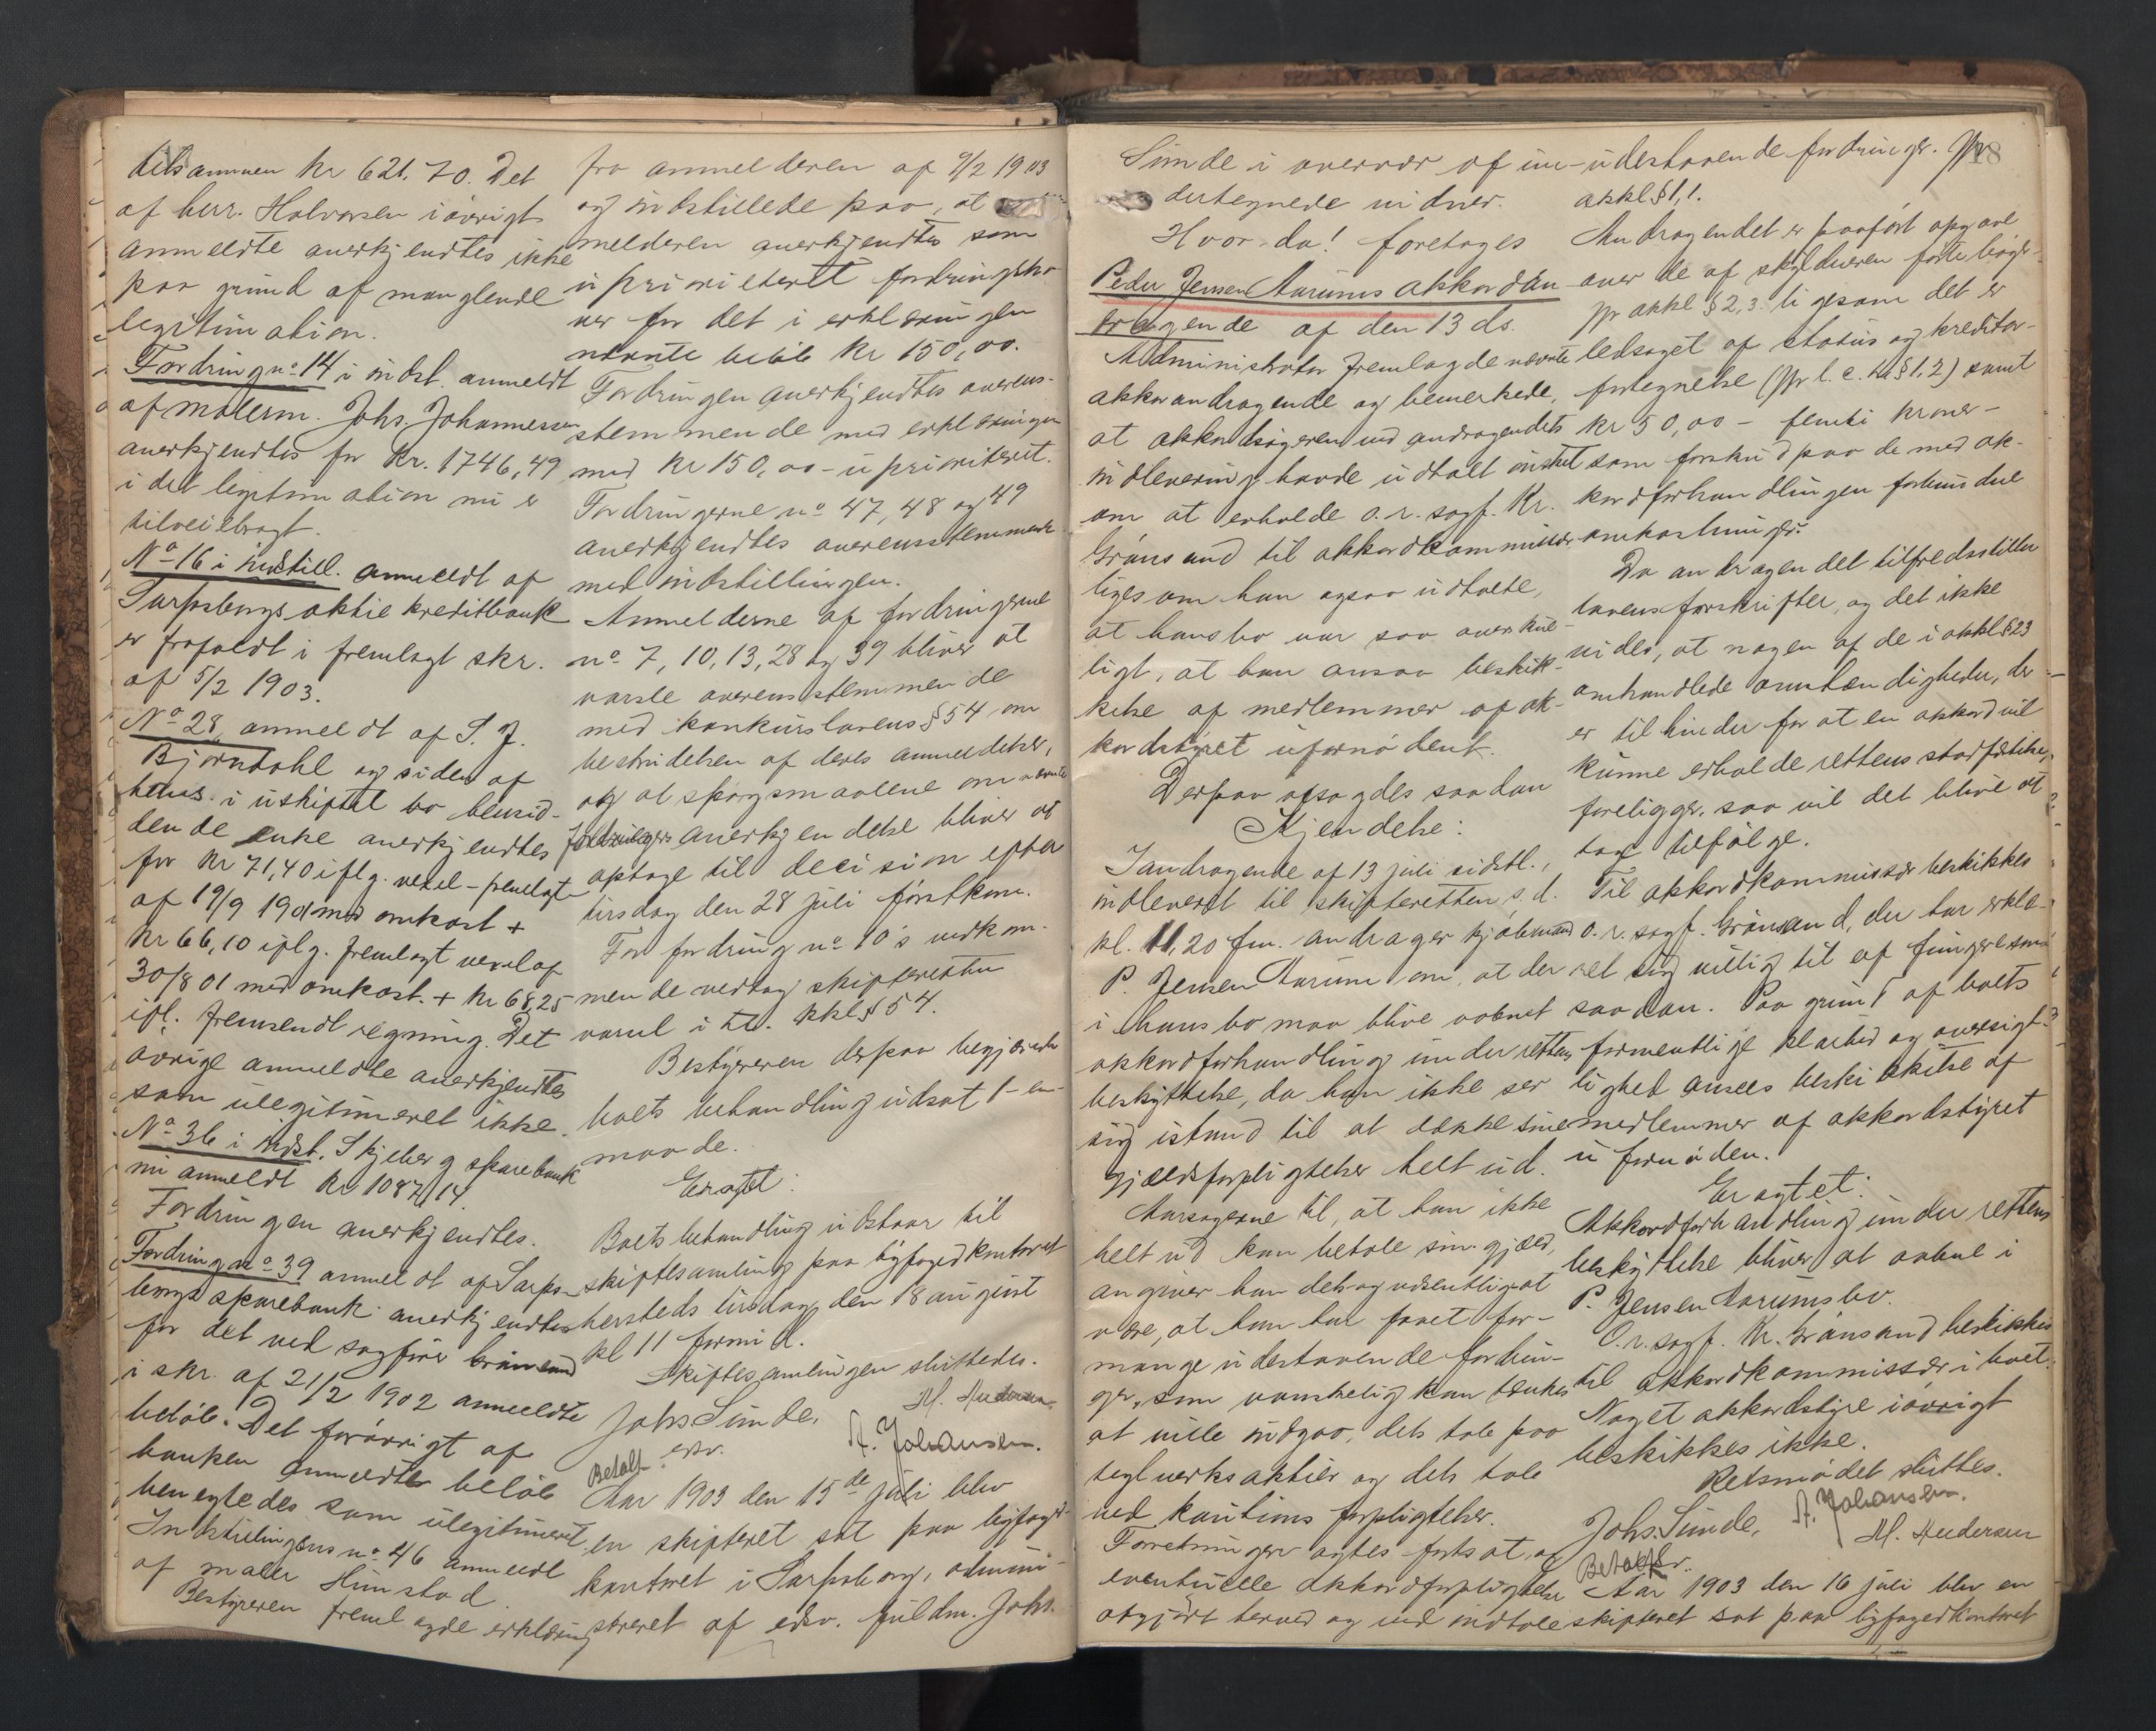 tilsammen Kr 621.70. Det
af herr. Halvorsen iövrigt
anmeldte anerkjendtes ikke
paa grund af manglende
legitimation.
Fordring no 14 i indst. anmeldt
af malerm. Johs. Johannessen
anerkjendtes for Kr. 1746,49
i det legitimation nu er
tilveiebragt.
No 16 i indstill. anmeldt af
Sarpsborgs aktie kreditbank
er frafaldt i fremlagt skr.
af 5/2 1903.
No 28, anmeldt af S. J.
Björndahl og siden af
hans i uskiftet bo bensid-
dende enke anerkjendtes
for Kr 71,40 iflg. vexel-fremlagt
af 19/9 1901 med omkost +
Kr 66,10 iflg. fremlagt vexel af
30/8 01 med omkost. + Kr 68,25
ifl. fremsendt regning. Det
övrige anmeldte anerkjendtes
som ulegitimeret ikke.
No 36 i indst. Skjeberg sparebank
nu anmeldt Kr 1087,14.
Fordringen anerkjendtes.
Fordring no 39 anmeldt af Sarps-
borgs sparebank anerkjendtes
for det ved sagförer Grönsand
i skr. af 21/2 1902 anmeldte
belöb. Det forövrigt af
banken anmeldte belöb
benegtedes som ulegitimeret
Indstillingens no 46 anmeldt
af maler Himstad.
Bestyreren fremlagde erklæring
fra anmelderen af 9/2 1903
og indstillede paa, at
melderen anerkjendtes som
uprioriteret fordringsha-
ver for det i erklæringen
nævnte belöb Kr 150,00.
Fordringen anerkjendtes overens-
stemmende med erklæringen
med Kr 150,00 - uprioriteret.
Fordringerne no 47, 48 og 49
anerkjendtes overensstemmende
med indstillingen.
Anmelderne af fordringerne
no 7, 10, 13, 28 og 39 bliver at
varsle overensstemmende
med konkurslovens § 54 om
bestridelsen af deres anmeldelser,
og at spörgsmaalene om nævnte
fordringers anerkjendelse bliver at
optage til decision efter
tirsdag den 28 juli förstkom.
For fordring no 10's vedkom-
mende vedtog skifteretten
varsel i ht. kkl § 54.
Bestyreren derpaa begjærede
boets behandling udsat 1-en-
maaned.
Eragtet:
Boets behandling udstaar til
skiftesamling paa byfogedkontoret
hersteds tirsdag den 18 august
kl 11 formid.
Skiftesamlingen sluttedes.
Johs Sunde,
edsv.
M. Andersen.
A. Johansen.
Betalt
Aar 1903 den 15de juli blev
en skifteret sat paa byfoged-
kontoret i Sarpsborg, admini-
streret af edsv. fuldm. Johs.
18
Sunde i overvær af un-
dertegnede vidner.
Hvor da! foretoges
Peder Jensen Aarums akkordan-
dragende af den 13 ds.
Administrator fremlagde nævnte
akkorandragende og bemerkede,
at akkordsögeren ved andragendets
indlevering havde udtalt önsket
om at erholde o.r. sagf. Kr.
Grönsand til akkordkommissær,
ligesom han ogsaa udtalte,
at hans bo var saa overskue-
ligt, at han ansaa beskik-
kelse af medlemmer af ak-
kordstyret ufornödent.
Derpaa afsagdes saadan
Kjendelse:
I andragende af 13 juli sidstl.,
indleveret til skifteretten s. d.
kl. 11,20 fm. andrager kjöbmand
P. Jensen Aarum om, at der
i hans bo maa blive aabnet
akkordforhandling under rettens
beskyttelse, da han ikke ser
sig istand til at dække sine
gjældsforpligtelser helt ud.
Aarsagerne til, at han ikke
helt ud kan betale sin gjæld,
angiver han dels og væsentligst at
være, at han har faaet for-
mange udestaaende fordrin-
ger, som vanskelig kan tænkes
at ville indgaa, dels tab paa
teglverksaktier og dels tab
ved kautions forpligtelser.
Forretningen agtes fortsat og
eventuelle akkordforpligtelse
afgjört herved og ved indtale
udestaaende fordringer. Jfr
akkl § 1,1.
Andragendet er paaført opgave
over de af skyldneren förte böger-
jfr akkl § 2,3. ligesom det er
ledsaget af status og kreditor-
fortegnelse (jfr l. c. § 1, 2) samt
Kr 50,00 - femti kroner -
som forskud paa de med ak-
kordforhandlingen forbundne
omkostninger.
Da andragendet tilfredsstiller
lovens forskrifter, og det ikke
vides, at nogen af de i akkl § 23
omhandlede omstændigheder, der
er til hinder for at en akkord vil
kunne erholde rettens stadfæstelse,
foreligger, saa vil det blive at
tage tilfölge.
Til akkordkommissær beskikkes
o. r. sagf. Grönsand, der har erklæ-
ret sig villig til at fungere som
saadan. Paa grund af boets
formentlige klarhed og oversigt-
lighed ansees beskikkelse af
medlemmer af akkordstyret
ufornöden.
Eragtet:
Akkordforhandling under rettens
beskyttelse bliver at aabne i
P. Jensen Aarums bo.
O.r. sagf. Kr. Grönsand beskikkes
til akkordkommissær i boet.
Noget akkordstyre iövrigt
beskikkes ikke.
Retsmödet sluttes.
Johs. Sunde,
edsv.
A. Johansen.
M. Andersen
Betalt
Aar 1903 den 16 juli blev en
skifteret sat paa byfogedkontoret